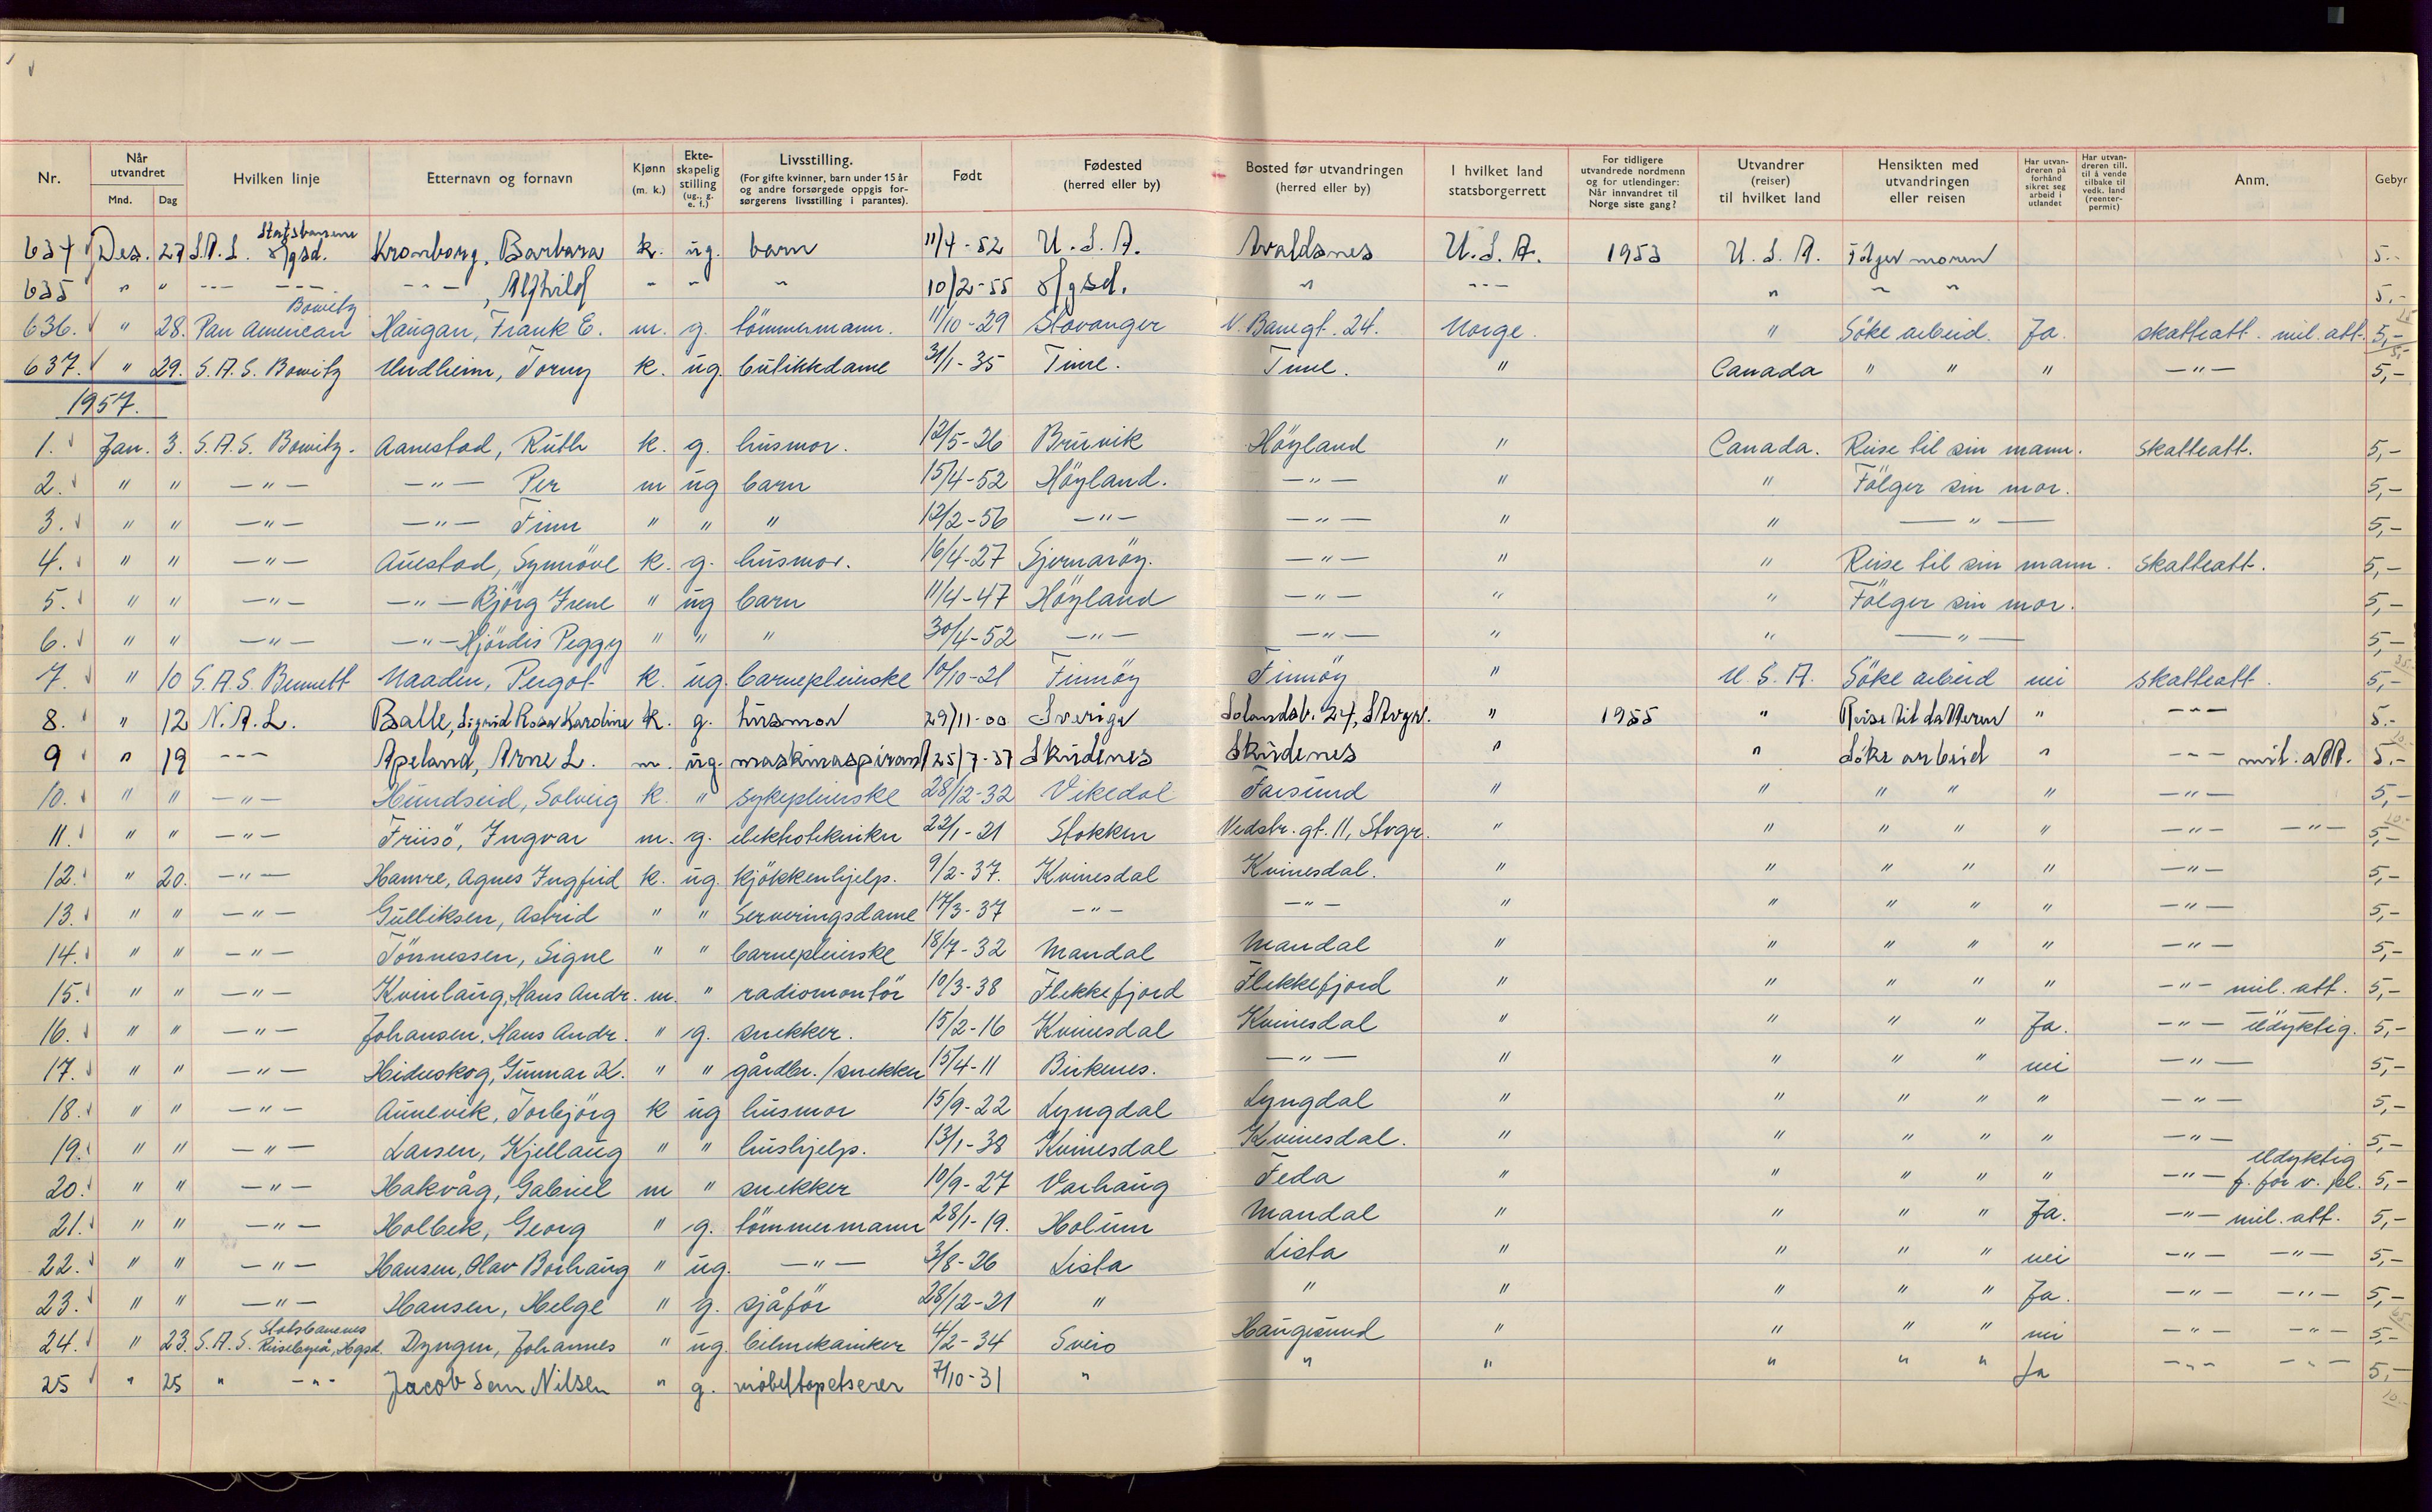 Nr. | Når utvandret Mnd. Dag | Hvilken linje | Etternavn og fornavn | Kjønn (m. k.) | Ekteskapelig stilling (ug., g. e. f.) | Livsstilling. (For gifte kvinner, barn under 15 år og andre forsørgede oppgis forsørgerens livsstilling i parantes). | Født | Fødested (herred eller by) | Bosted før utvandringen (herred eller by) | I hvilket land statsborgerrett | For tidligere utvandrede nordmenn og for utlendinger: Når innvandret til Norge siste gang? | Utvandrer (reiser) til hvilket land | Hensikten med utvandringen eller reisen | Har utvandreren på forhånd sikret seg arbeid i utlandet | Har utvandreren till. til å vende tilbake til vedk. land (reenterpermit) | Anm. | Gebyr
634 Des. 27 S.A.S. Statsbanene Hgsd. Kronborg, Barbara k. ug. barn 11/4-52 U.S.A. Avaldsnes U.S.A. 1953 U.S.A. Følger moren 5.-
635 " " --- --- ---, Alfhild " " " 10/2-55 Hgsd. " --- " " " 5.-
636. " 28. Pan American Bowitz Haugan, Frank E. m. g. tömmermann. 11/10-29 Stavanger N. Banegt. 24. Norge. " Söke arbeid. Ja. skatteatt. mil. att. 5,-
637. " 29. S.A.S. Bowitz Undheim, Torny k. ug. butikkdame 31/1-35 Time. Time. " Canada " " " —"— 5,-
1957.
1. Jan. 3. S.A.S. Bowitz. Aanestad, Ruth k. g. husmor. 12/5-26 Bruvik Höyland " Canada. Reise til sin mann. skatteatt. 5,-
2. " " —"— —"— Per m ug barn 15/4-52 Höyland. —"— " " Fölger sin mor. 5,-
3. " " —"— —"— Finn " " " 12/2-56 —"— —"— " " —"— 5,-
4. " " —"— Auestad, Synnöve k. g. husmor. 16/4-27 Sjernaröy. —"— " " Reise til sin mann. skatteatt. 5,-
5. " " —"— —"— Björg Irene " ug barn 11/4-47 Höyland —"— " " Fölger sin mor. 5,-
6. " " —"— —"— Hjördis Peggy " " " 30/4-52 —"— —"— " " —"— 5,-
7. " 10 S.A.S. Bennett Naaden, Pergot k. ug. barnepleierske 10/10-21 Finnöy Finnöy " U.S.A. Söke arbeid nei skatteatt. 5,-
8. " 12 N.A.L. Balle, Sigrid Rosa Karoline k. g. husmor 29/11-00 Sverige Solandsb. 24, Stvgr. " 1955 " Reise til datteren " —"— 5.-
9 " 19 --- Apeland, Arne L. m. ug. maskinaspirant 25/7-37 Skudenes Skudenes " " Söke arbeid " --- mil. att. 5.-
10. " " —"— Hundseid, Solveig k. " sykepleierske 28/12-32 Vikedal Farsund " " " " " —"— 5,-
11. " " —"— Friisö, Ingvar m. g. elektrotekniker 22/1-21 Stokken Vedstr. gt. 11, Stvgr. " " " " " —"— —"— 5,-
12. " 20. —"— Hamre, Agnes Ingfrid k. ug. kjökkenhjelp. 9/2-37. Kvinesdal Kvinesdal. " " " " " —"— 5,-
13. " " —"— Gulliksen, Astrid " " Serveringsdame 17/3-37 —"— —"— " " " " " —"— 5,-
14. " " —"— Tönnessen, Signe " " barnepleierske 18/7-32 Mandal Mandal " " " " " —"— 5,-
15. " " —"— Kvinlaug, Hans Andr. m. " radiomontör 10/3-38 Flekkefjord Flekkefjord " " " " " —"— mil. att. 5,-
16. " " —"— Johansen, Hans Andr. " g. snekker. 15/2-16 Kvinesdal Kvinesdal " " " " Ja. —"— Udyktig. 5,-
17. " " —"— Hideskog, Gunnar K. " " gårdbr./snekker 15/4-11 Birkenes. —"— " " " " nei —"— 5,-
18. " " —"— Aunevik, Torbjörg k ug husmor 15/9-22 Lyngdal Lyngdal " " " " " —"— 5,-
19. " " —"— Larsen, Kjellaug " " hushjelp. 13/1-38 Kvinesdal Kvinesdal. " " " " " —"— 5,-
20. " " —"— Hakvåg, Gabriel m " snekker 10/9-27 Varhaug Feda " " " " " —"— Udyktig f. for v. pl. 5,-
21. " " —"— Holbek, Georg " g. tömmermann 28/1-19. Holum Mandal " " " " Ja. —"— mil. att. 5,-
22. " " —"— Hansen, Olav Borhaug " ug. —"— 3/8-26 Lista Lista " " " " nei —"— —"— 5,-
23. " " —"— Hansen, Helge " g. sjåför 28/12-21 " " " " " " Ja. —"— —"— 5,-
24. " 23. S.A.S. Statsbanenes Reisebyrå, Hgsd. Dyngen, Johannes " ug. bilmekaniker 4/2-34 Sveio Haugesund " " " " nei —"— —"— 5,-
25 " 25 " —"— Jacob Sem Nilsen " g. møbeltapetserer 7/10-31 " " " " " " Ja —"— —"— 5,-